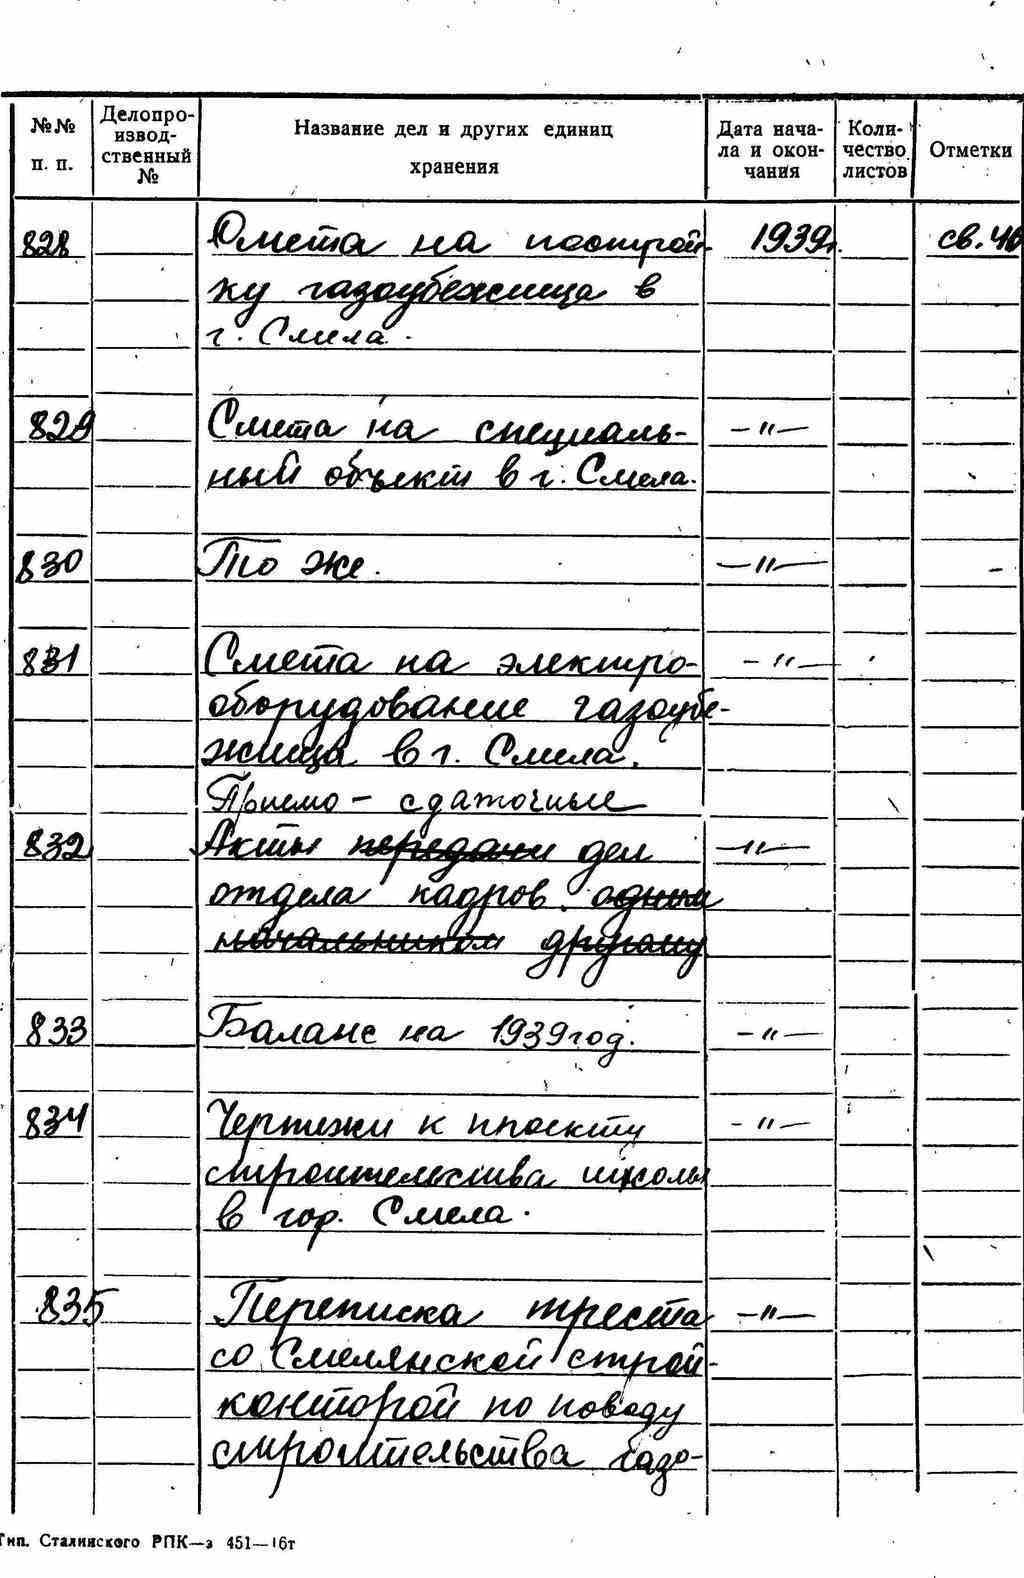 №№ п. п. Делопроизводственный № Название дел и других единиц хранения Дата начала и окончания Количество листов Отметки
828 Смета на построй- 1939г. св. 46
ку газоубежища в
г. Смела.
829 Смета на специаль- —"—
ный объект в г. Смела.
830 То же. —"—
831 Смета на электро- —"—
оборудование газоубе-
жища в г. Смела.
Приемо - сдаточные
832 Акты передачи дел —"—
отдела кадров одним
начальником другому
833 Баланс на 1939 год. —"—
834 Чертежи к проекту —"—
строительства школы
в гор. Смела.
835 Переписка треста —"—
со Смелянской строй-
конторой по поводу
строительства газо-
Тип. Сталинского РПК—з 451—16т